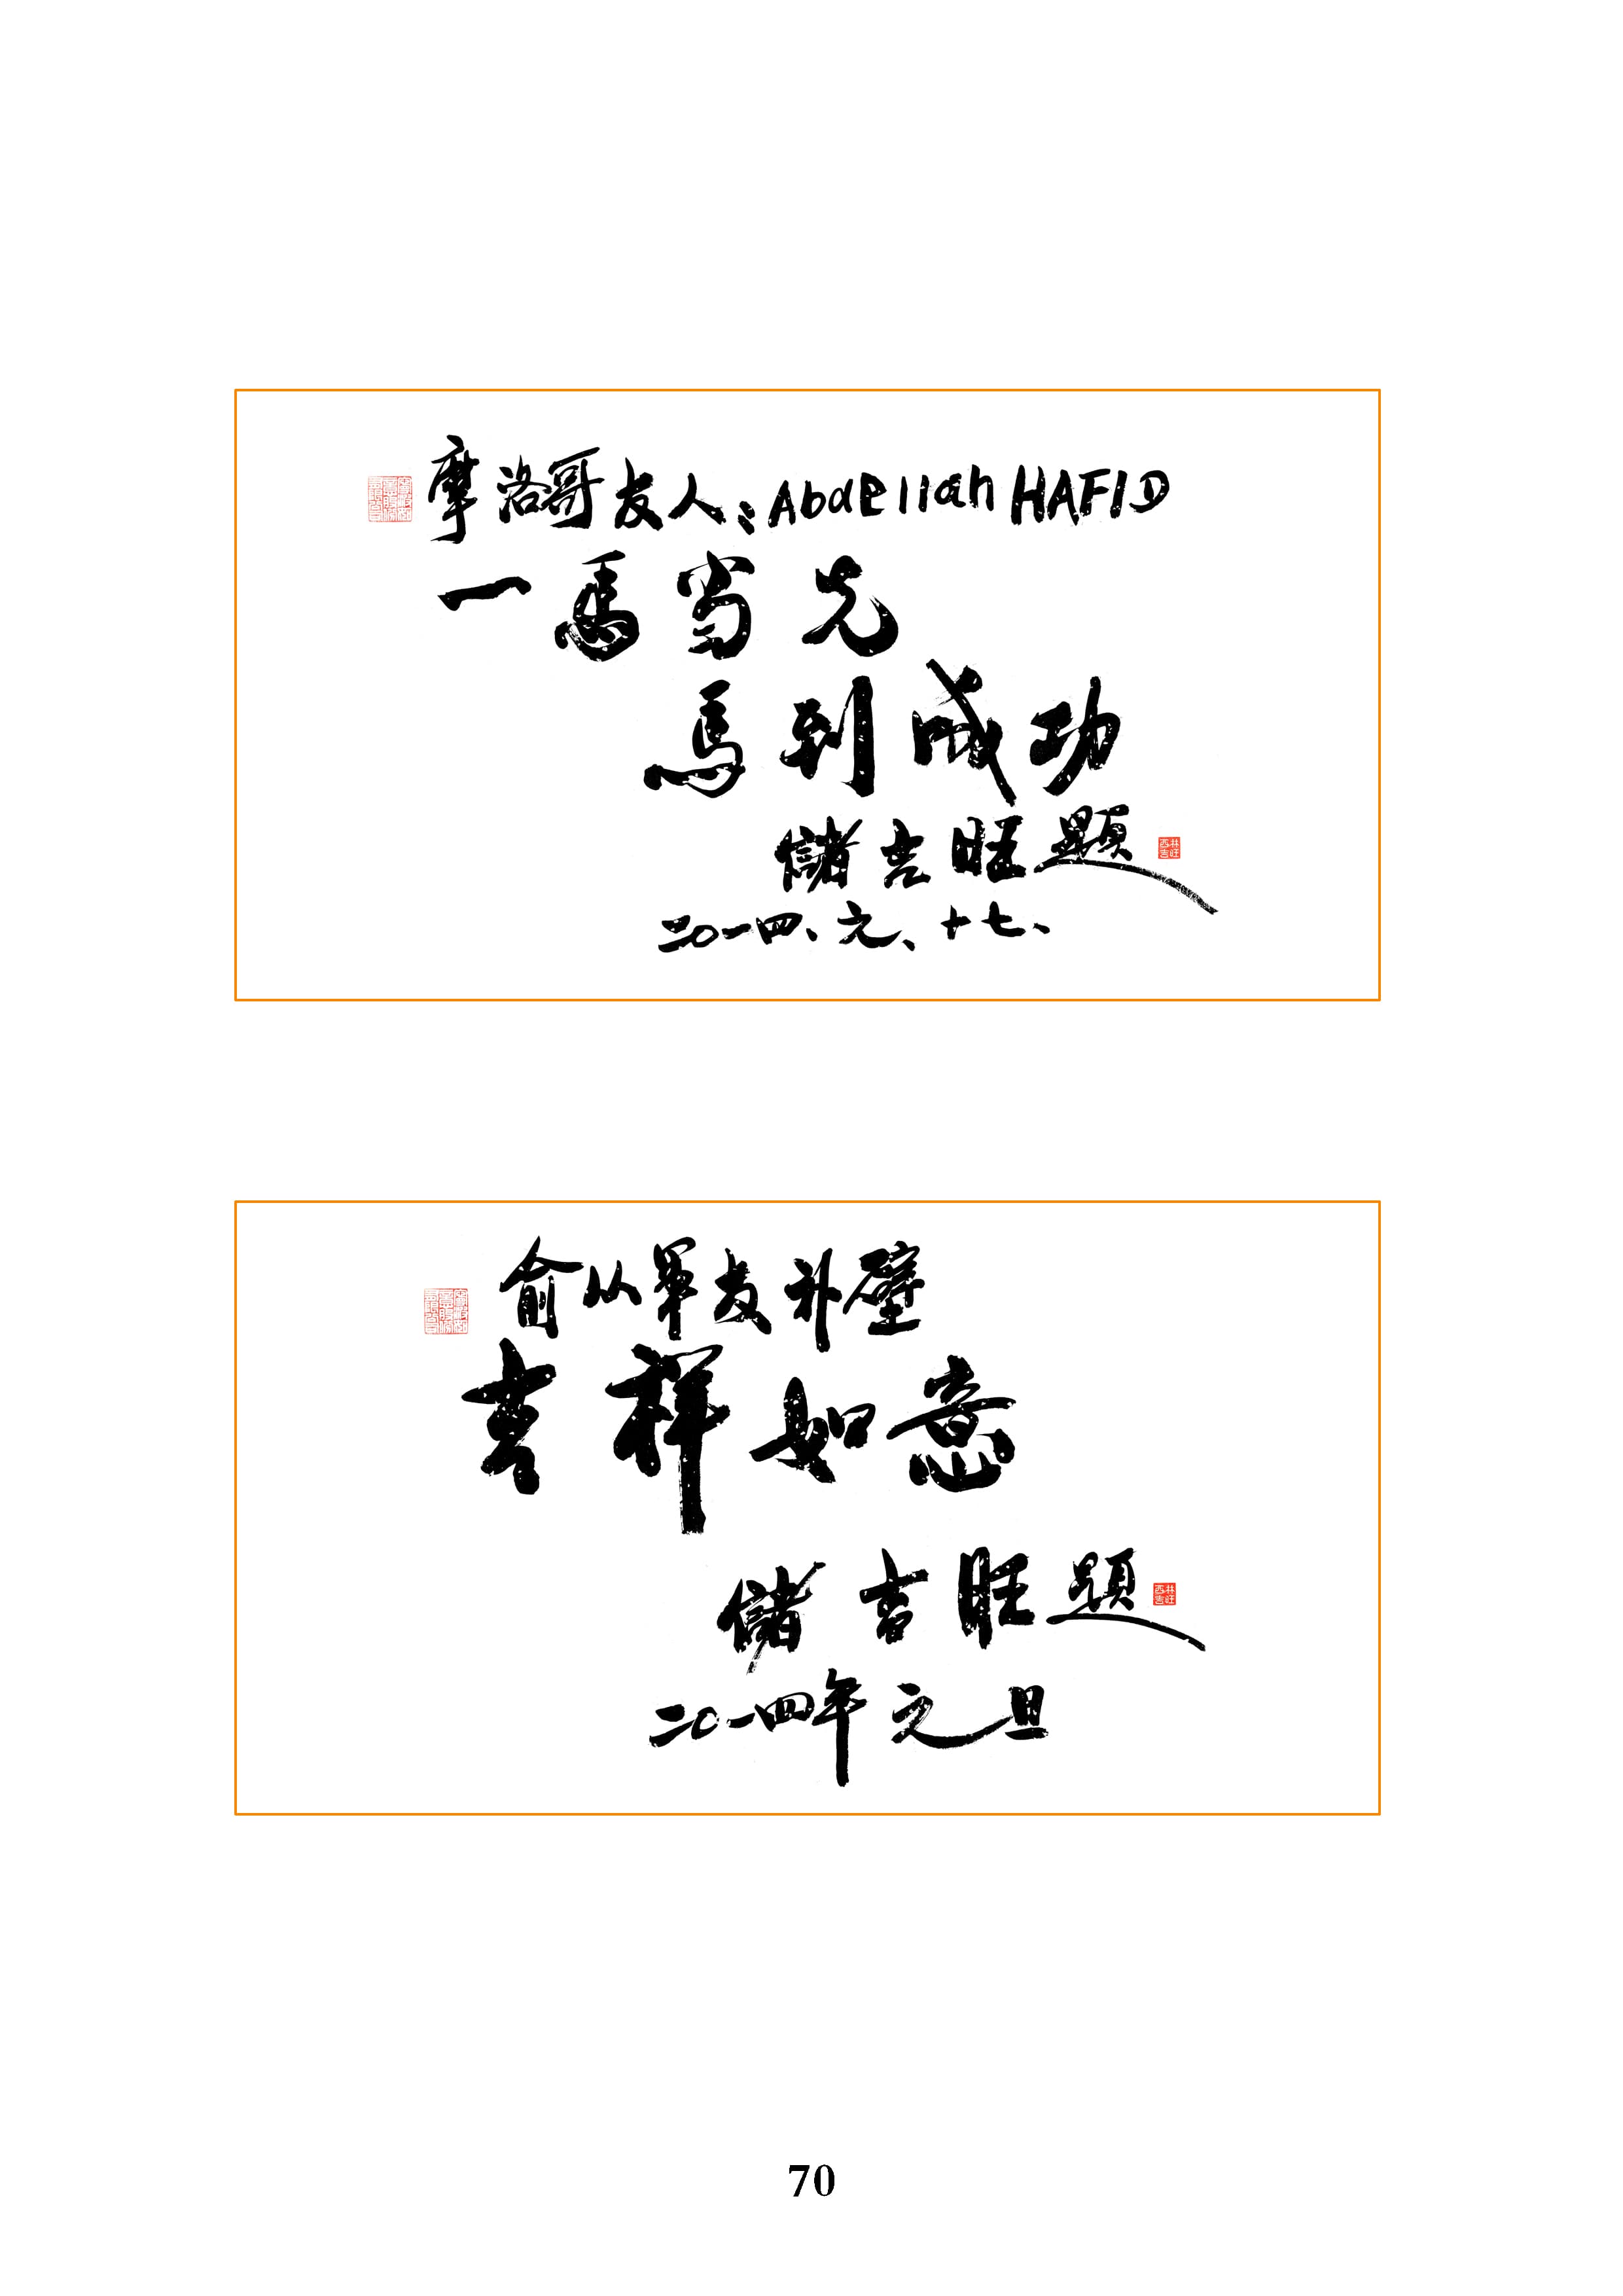 摩洛哥友人：Abdellah HAFID
一馬当先
馬到成功
儲吉旺題
二〇一四、元、十七、
俞从軍友补壁
吉祥如意
儲吉旺題
二〇一四年元旦
70